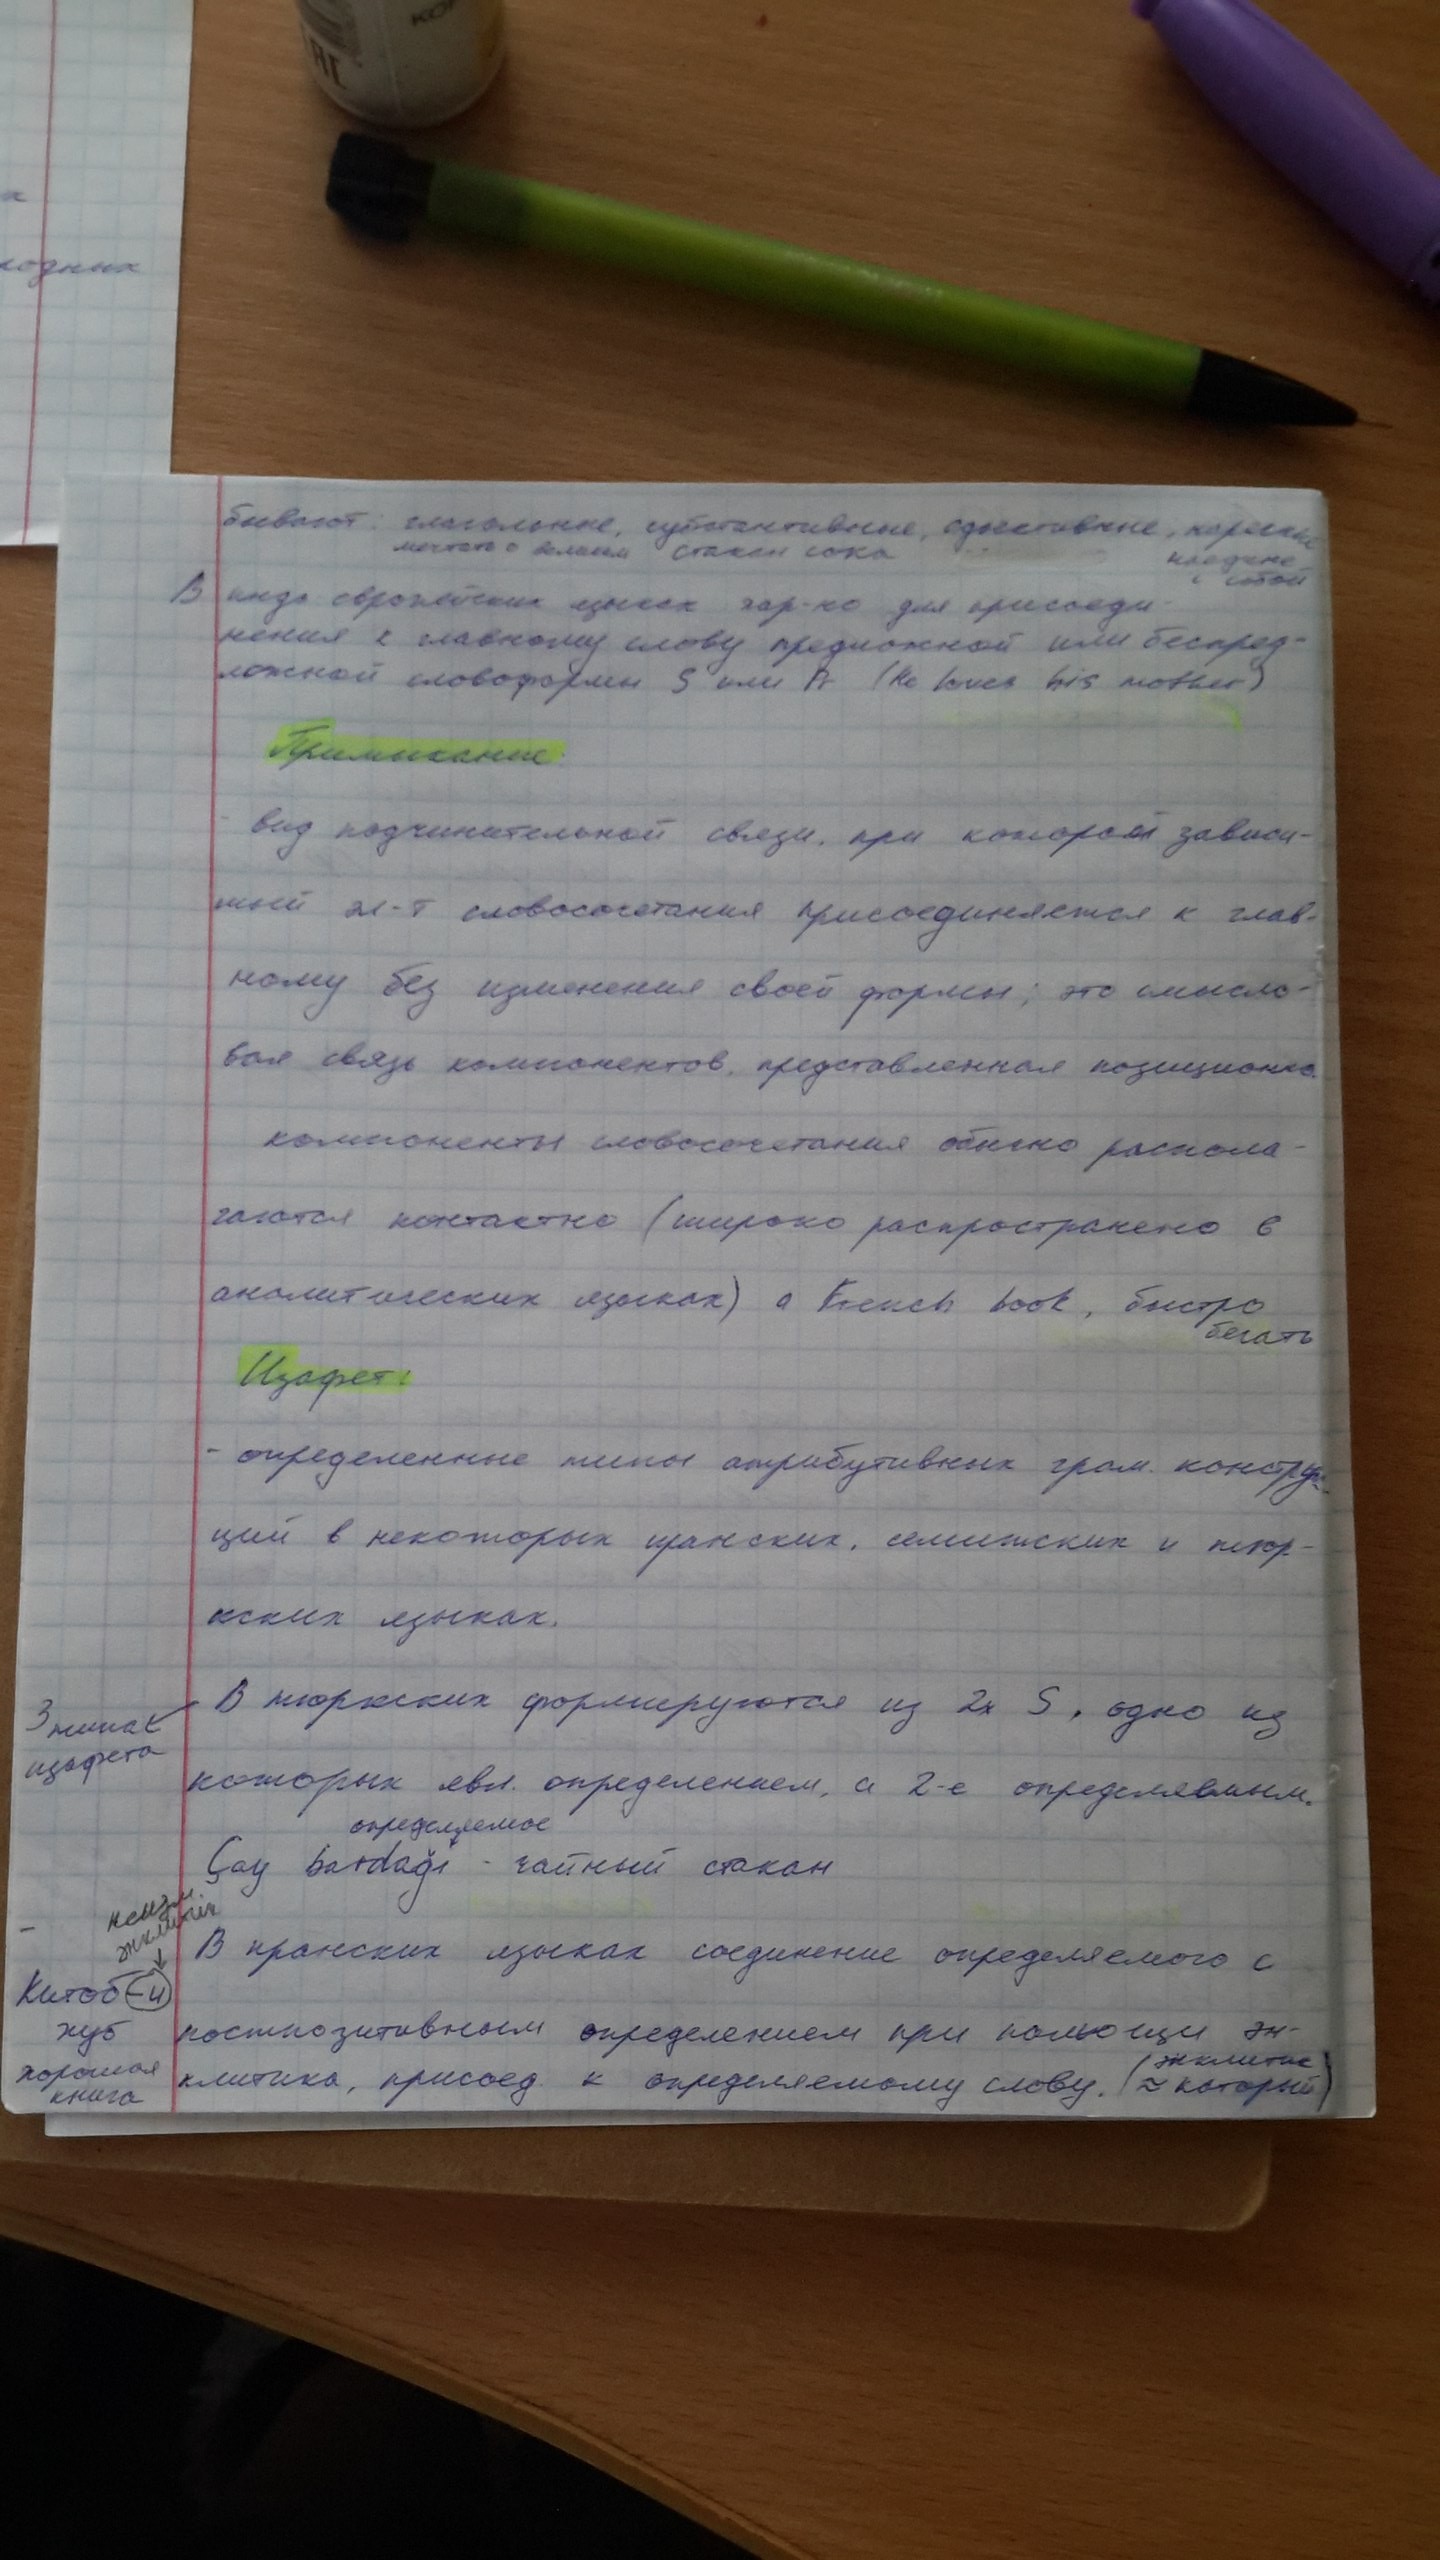 КОН
EAC
х
ходных
бывают: глагольные, субстантивные, адъективные, наречные
мечтать о белом стакан сока наедине
с собой
В индо европейских языках хар-но для присоеди-
нения к главному слову предложной или беспред-
ложной словоформы S или Pr (He loves his mother)
Примыкание:
- вид подчинительной связи, при которой зависи-
мый эл-т словосочетания присоединяется к глав-
ному без изменения своей формы; это смысло-
вая связь компонентов, представленная позиционно
компоненты словосочетания обычно распола-
гаются контактно (широко распространено в
аналитических языках) a French book, быстро
бегать
Изафет:
- определенные типы атрибутивных грам. конструк-
ций в некоторых иранских, семитских и тюр-
кских языках.
3 типа
изафета
В тюркских формируются из 2х S, одно из
которых явл. определением, а 2-е определяемым.
определяемое
Çay bardağı - чайный стакан
неизм
энклитик
В иранских языках соединение определяемого с
Китоб-и
хуб
хорошая
книга
постпозитивным определением при помощи эн-
клитика, присоед. к определяемому слову. (энклитик
≈ который)